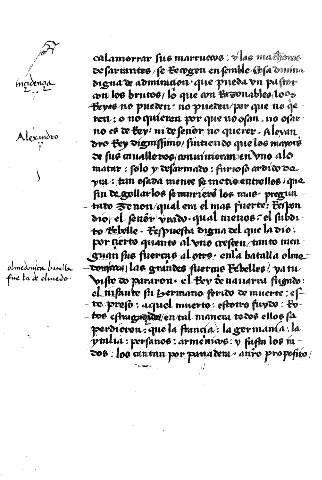 calamorrar sus marruecos: y las
desarrantes, se Recogen ensemble. Cosa
digna de admiracion, que pueda un pastor
con los brutos, lo que con Razonables, los
Reyes no pueden: no pueden, por que no
ten: o no quieren por que no osan. no osar
no es de Rey: ni de señor no querer. Alexan
dro Rey dignissimo, sintiendo que los mayores
de sus cavalleros, en uno a lo
matar: solo y desarmado: furioso ardido de
yra: tan osada mente se metio entrellos, que
sin degollar los se murieron los mas. pregun
tado Zenon, qual era el mas fuerte: Respon
dio, el señor yrado. qual menos: el subdi
to Rebelle. Respuesta digna del que la dio:
por cierto quanto al uno crescen, tanto men
guan sus fuerças al otro. en la batalla olme
las grandes fuerças Rebelles, ya tu
visto do pararon. el Rey de navarra fuyendo:
el infante su hermano ferido de muerte: es
te preso: aquel muerto: estotro fuydo: Ro
tos en tal manera todos ellos sa
perdieron: que la francia: la germania: la
ytalia: persanos: armenios: y fasta los in
dos: los cantan por panadera. a nro proposito:
incidenza
Alexandro
batalla
fue la de olmedo.